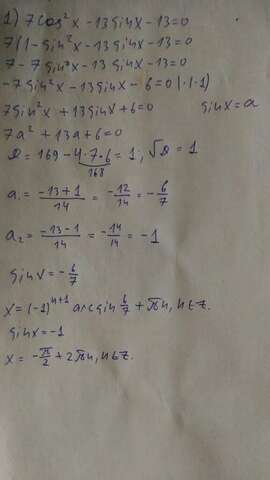 1) 7cos²x - 13sinx - 13 = 0
7(1 - sin²x - 13sinx - 13 = 0
7 - 7sin²x - 13sinx - 13 = 0
-7sin²x - 13sinx - 6 = 0 |·(-1)
7sin²x + 13sinx + 6 = 0 sinx = a
7a² + 13a + 6 = 0
D = 169 - 4·7·6 = 1; √D = 1
168
a₁ = (-13+1)/14 = -12/14 = -6/7
a₂ = (-13-1)/14 = -14/14 = -1
sinx = -6/7
x = (-1)ⁿ⁺¹ arcsin 6/7 + πn, n∈z.
sinx = -1
x = -π/2 + 2πn, n∈z.